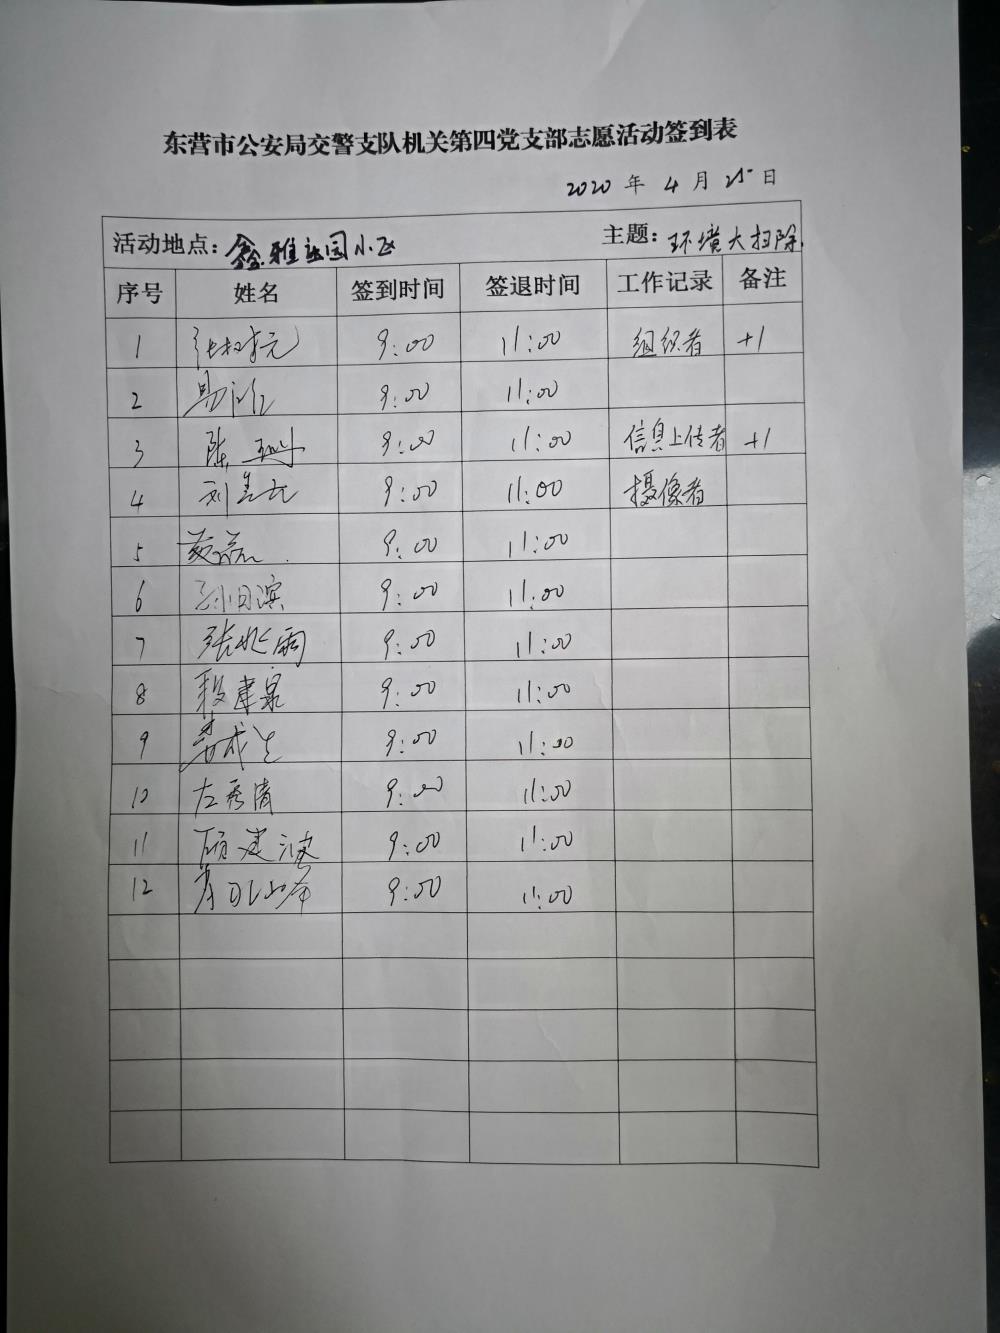 东营市公安局交警支队机关第四党支部志愿活动签到表
2020 年 4 月 25 日
活动地点: 鑫雅 园小区 主题: 环境大扫除
序号 姓名 签到时间 签退时间 工作记录 备注
1 9:00 11:00 组织者 +1
2 9:00 11:00
3 陈 9:00 11:00 信息上传者 +1
4 刘 9:00 11:00 摄像者
5 9:00 11:00
6 孙日滨 9:00 11:00
7 张兆雨 9:00 11:00
8 段建泉 9:00 11:00
9 9:00 11:00
10 左秀清 9:00 11:00
11 顾建波 9:00 11:00
12 9:00 11:00